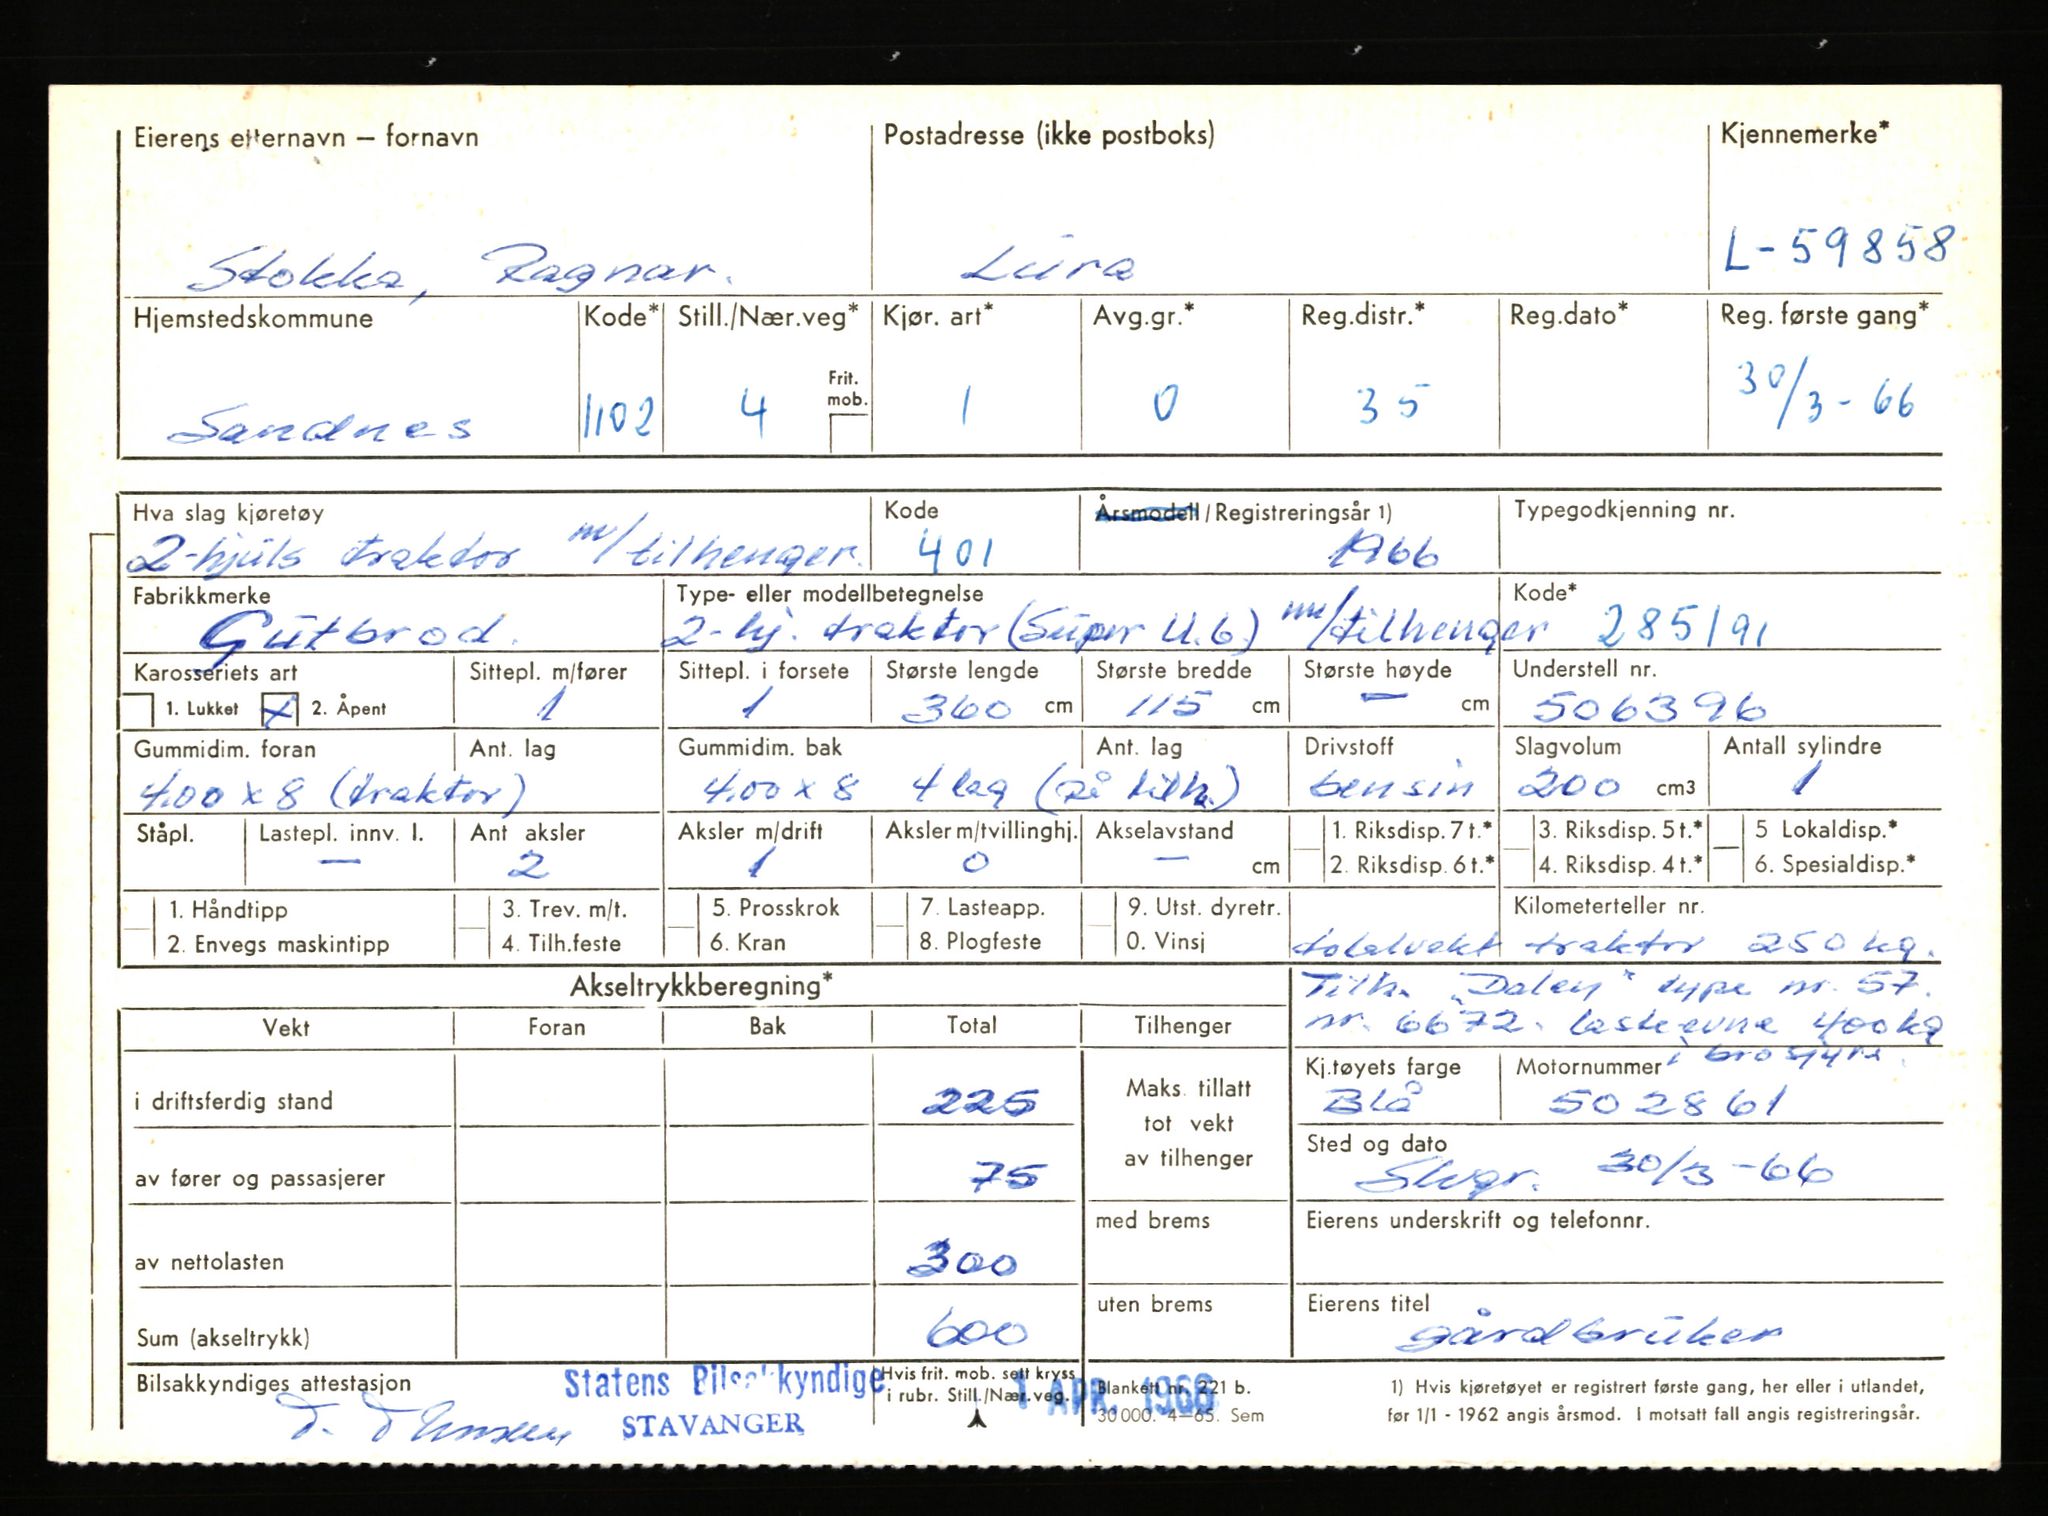 Eierens etternavn – fornavn Postadresse (ikke postboks) Kjennemerke*
Stokka, Ragnar. Lura L-59858
Hjemstedskommune Kode* Still./Nær.veg* Kjør. art* Avg.gr.* Reg.distr.* Reg.dato* Reg. første gang*
Frit. mob.
Sandnes 1102 4 1 0 35 30/3-66
Hva slag kjøretøy Kode Årsmodell/Registreringsår 1) Typegodkjenning nr.
2-hjuls traktor m/tilhenger. 401 1966
Fabrikkmerke Type- eller modellbetegnelse Kode*
Gutbrod. 2-hj. traktor (Super U.6) m/tilhenger 285191
Karosseriets art Sittepl. m/fører Sittepl. i forsete Største lengde Største bredde Største høyde Understell nr.
1. Lukket x 2. Åpent 1 1 360 cm 115 cm — cm 506396
Gummidim. foran Ant. lag Gummidim. bak Ant. lag Drivstoff Slagvolum Antall sylindre
4.00 x 8 (traktor) 4.00 x 8 4 lag (på tilh.) bensin 200 cm3 1
Ståpl. Lastepl. innv. l. Ant aksler Aksler m/drift Aksler m/tvillinghj. Akselavstand 1. Riksdisp. 7 t.* 3. Riksdisp. 5 t.* 5 Lokaldisp.*
— 2 1 0 — cm 2. Riksdisp. 6 t.* 4. Riksdisp. 4 t.* 6. Spesialdisp.*
1. Håndtipp 3. Trev. m/t. 5. Prosskrok 7. Lasteapp. 9. Utst. dyretr. Kilometerteller nr.
2. Envegs maskintipp 4. Tilh.feste 6. Kran 8. Plogfeste 0. Vinsj totalvekt traktor 250 kg.
Akseltrykkberegning* Tilh. "Dalen" type nr. 57.
Vekt Foran Bak Total Tilhenger nr. 6672. lasteevne 400 kg
i brosjyre.
Kj.tøyets farge Motornummer
i driftsferdig stand 225 Maks. tillatt tot vekt av tilhenger Blå 502861
Sted og dato
av fører og passasjerer 75 Stvgr. 30/3-66
med brems Eierens underskrift og telefonnr.
av nettolasten 300
uten brems Eierens titel
Sum (akseltrykk) 600 gårdbruker
Bilsakkyndiges attestasjon Statens Bilsakkyndige Hvis frit. mob. sett kryss i rubr. Still./Nær.veg. 1 APR. 1966 Blankett nr. 221 b. 1) Hvis kjøretøyet er registrert første gang, her eller i utlandet,
STAVANGER 30 000. 4–65. Sem før 1/1 - 1962 angis årsmod. I motsatt fall angis registreringsår.